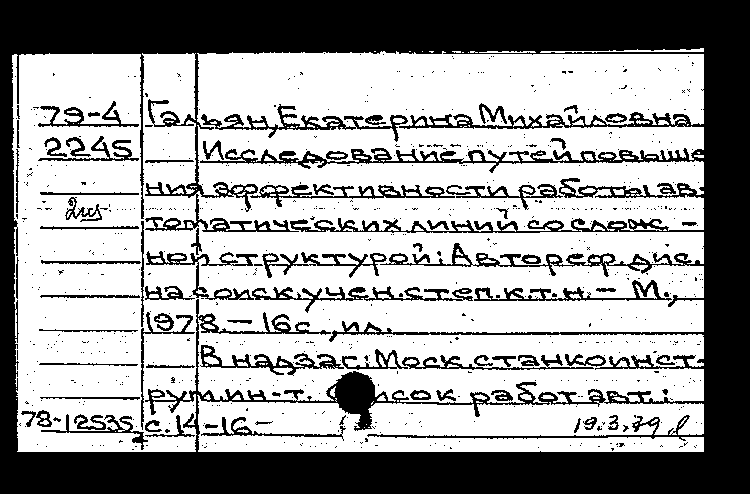 79-4 Гальян, Екатерина Михайловна
2245 Исследование путей повыше
ния эффективности работы ав-
томатических линий со слож-
ной структурой: Автореф. дис.
на соиск. учен. степ. к.т.н. – М.,
1978. – 16с., ил.
В надзаг.: Моск. станкоинст-
рум. ин-т. Список работ авт.:
78-12535 с. 14-16. – 19.3.79